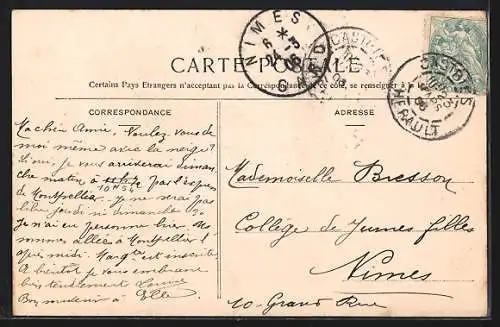 CARTE POSTALE
Certains Pays Etrangers n'acceptant pas la Correspondance de ce côté, se renseigner à la
CORRESPONDANCE
ADRESSE
NIMES
GARD
CASTRIES
HERAULT
Ma chère Amie. Voulez vous de
moi même avec la neige?
Si oui, je vous arriverai diman
che matin à
10h34
par l'express
de Montpellier. Je ne serai pas
libre jeudi ni dimanche
Je n'ai vu personne hier. Nous
sommes allés à Montpellier l'
après midi. Marg te est
A bientôt je vous embrasse
bien tendrement
Bon
Mademoiselle Bresson
Collège de Jeunes filles
Nimes
10 Grand Rue